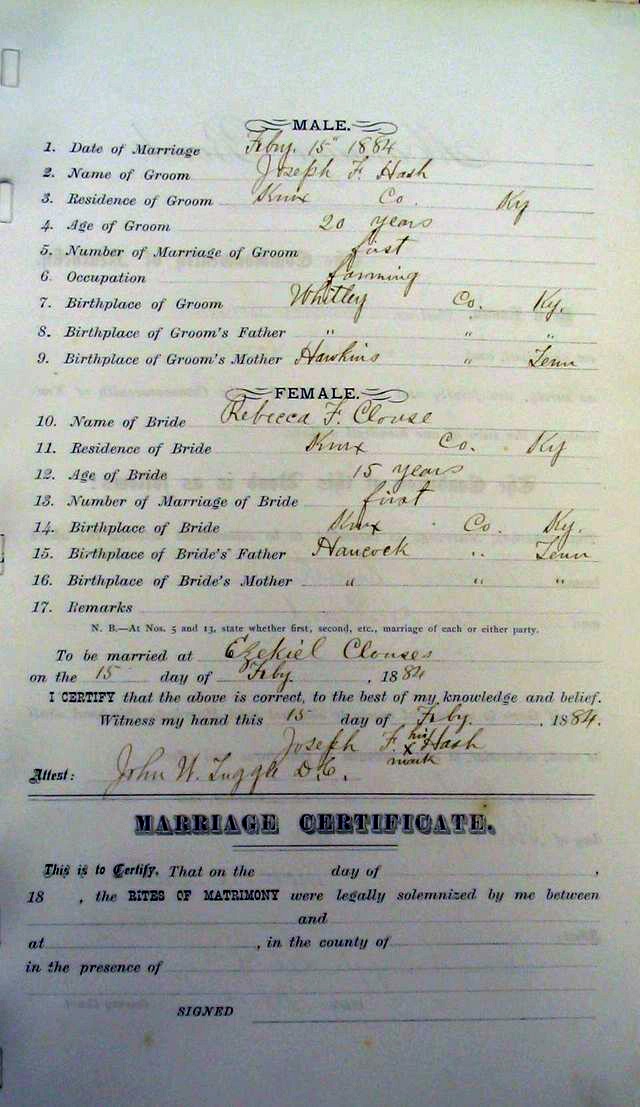 MALE.
1. Date of Marriage Feby. 15" 1884
2. Name of Groom Joseph F. Hash
3. Residence of Groom Knox Co. Ky
4. Age of Groom 20 years
5. Number of Marriage of Groom first
6. Occupation farming
7. Birthplace of Groom Whitley Co. Ky.
8. Birthplace of Groom's Father " " "
9. Birthplace of Groom's Mother Hawkins " Tenn
FEMALE.
10. Name of Bride Rebecca F. Clouse
11. Residence of Bride Knox Co. Ky
12. Age of Bride 15 years
13. Number of Marriage of Bride first
14. Birthplace of Bride Knox Co. Ky.
15. Birthplace of Bride's Father Hancock " Tenn
16. Birthplace of Bride's Mother " " "
17. Remarks
N. B.—At Nos. 5 and 13, state whether first, second, etc., marriage of each or either party.
To be married at Ezekiel Clouses
on the 15 day of Feby. , 1884
I CERTIFY that the above is correct, to the best of my knowledge and belief.
Witness my hand this 15 day of Feby. , 1884.
Joseph F. his x mark Hash
Attest: John W. Tuggle D.C.
MARRIAGE CERTIFICATE.
This is to Certify, That on the day of ,
18 , the RITES OF MATRIMONY were legally solemnized by me between
and
at , in the county of
in the presence of
SIGNED